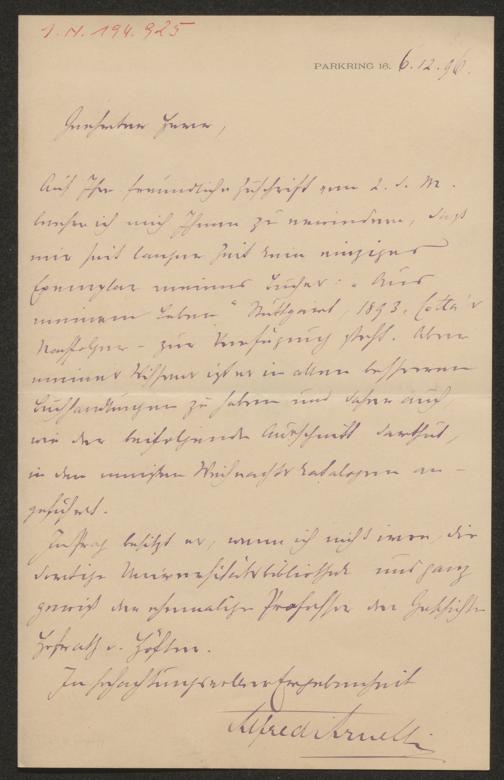 I. N. 194.925
PARKRING 16. 6.12.96.
Geehrter Herr,
Auf Ihre freundliche Zuschrift vom 2. d. M.
beehre ich mich Ihnen zu erwiedern, daß
mir seit langer Zeit kein einziges
Exemplar meines Buches: „Aus
meinem Leben“ Stuttgart, 1893. Cotta's
Nachfolger – zur Verfügung steht. Aber
meines Wissens ist es in allen besseren
Buchhandlungen zu haben und daher auch
wie der beifolgende Ausschnitt darthut,
in den meisten Weihnachtskatalogen an-
geführt.
In Prag besitzt es, wenn ich nicht irre, die
dortige Universitätsbibliothek und ganz
gewiß der ehemalige Professor der Geschichte
Hofrath v. Höfler.
In hochachtungsvoller Ergebenheit
Alfred Arneth